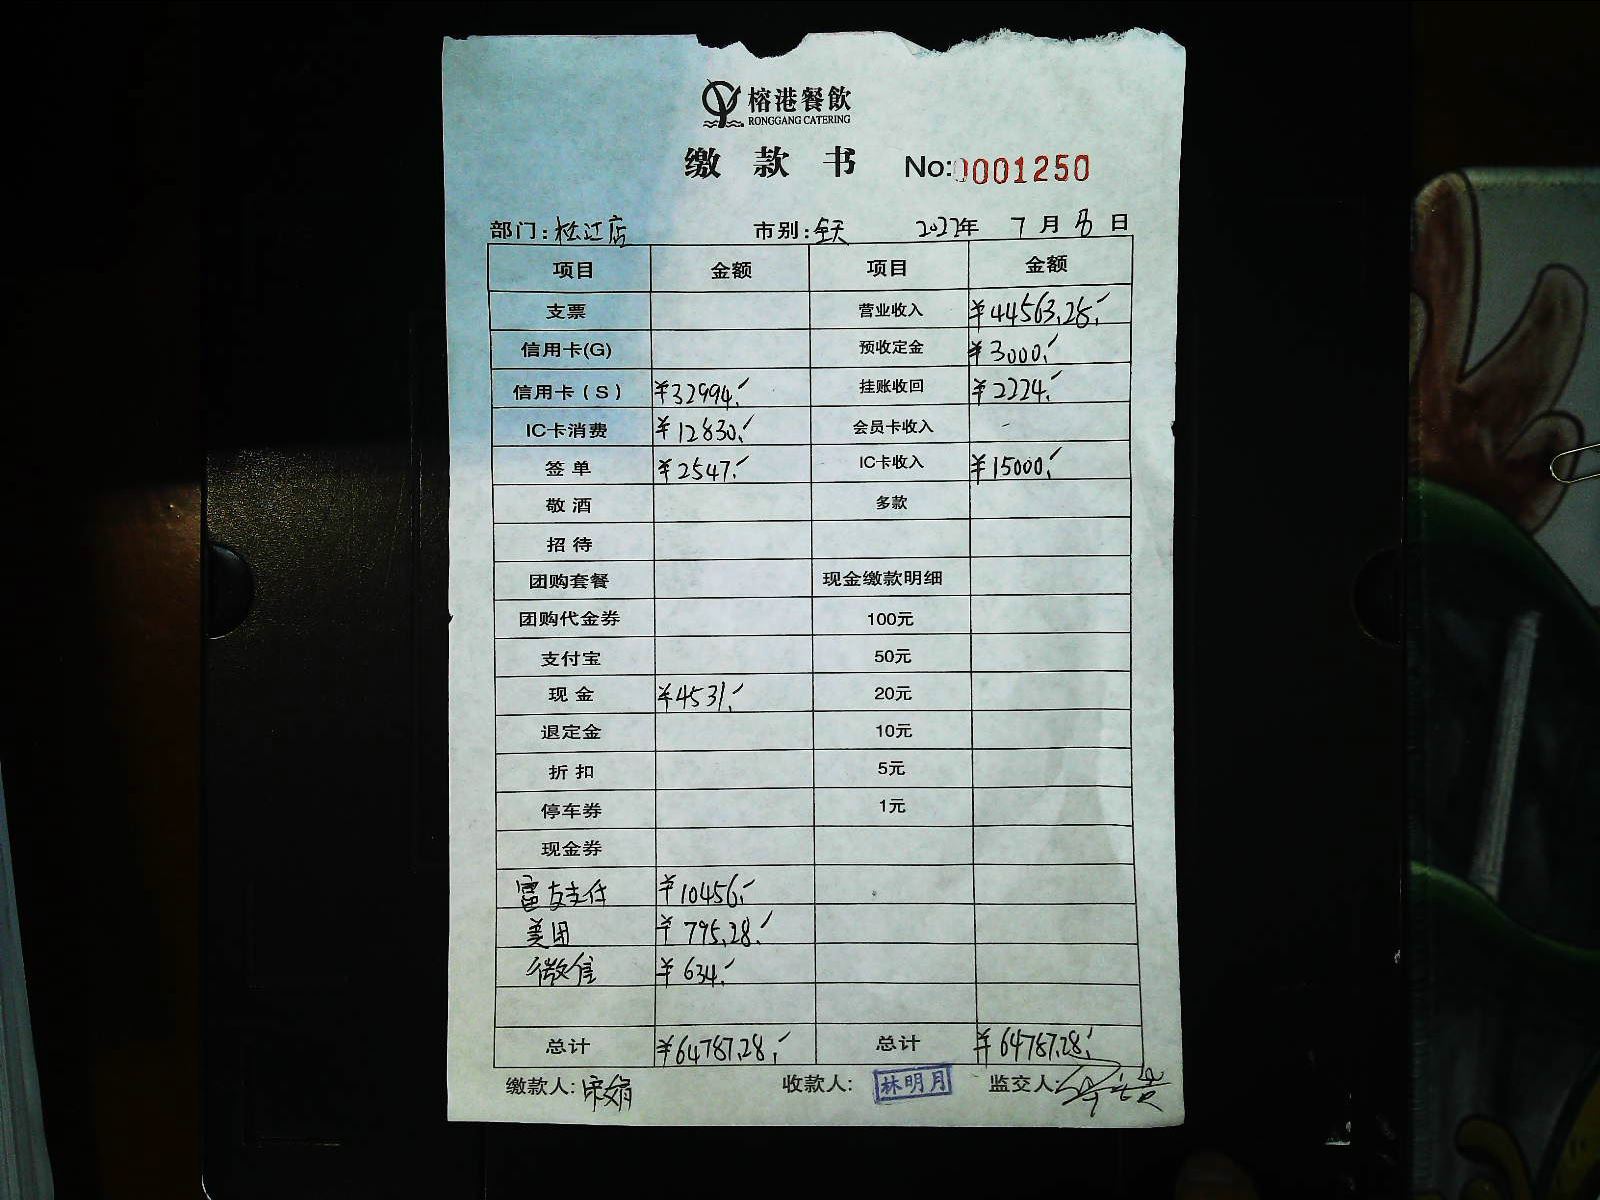 榕港餐飲
RONGGANG CATERING
缴款书 No:0001250
部门:松江店 市别:全天 2022年 7月 8日
项目 金额 项目 金额
支票 营业收入 ¥44563.28
信用卡(G) 预收定金 ¥3000
信用卡(S) ¥32994 挂账收回 ¥2224
IC卡消费 ¥12830 会员卡收入 -
签单 ¥2547 IC卡收入 ¥15000
敬酒 多款
招待
团购套餐 现金缴款明细
团购代金券 100元
支付宝 50元
现金 ¥4531 20元
退定金 10元
折扣 5元
停车券 1元
现金券
富友支付 ¥10456
美团 ¥795.28
微信 ¥634
总计 ¥64787.28 总计 ¥64787.28
缴款人: 收款人: 林明月 监交人: